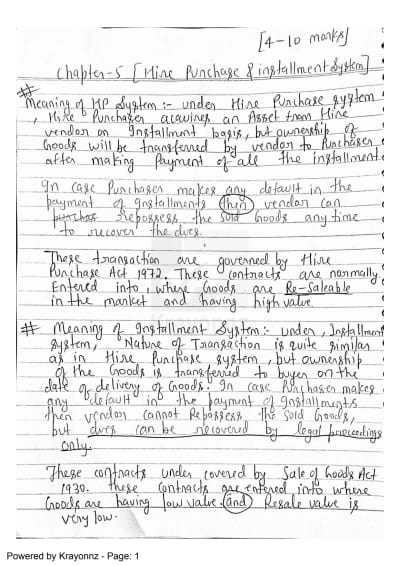 [4-10 marks]
Chapter-5 [Hire Purchase & installment System]
# Meaning of HP System :- under Hire Purchase system
, Hire Purchaser acquires an Asset from Hire
vendor on Installment basis, but ownership of
Goods will be transferred by vendor to Purchaser
after making Payment of all the installment
In case Purchaser makes any default in the
payment of Installments then vendor can
repossess the sold Goods any time
to recover the dues.
These transaction are governed by Hire
Purchase Act 1972. These contracts are normally
Entered into, where Goods are Re-Saleable
in the market and having high value
# Meaning of Installment System :- under, Installment
system, Nature of Transaction is quite similar
as in Hire Purchase system, but ownership
of the Goods is transferred to buyer on the
date of delivery of Goods. In case Purchaser makes
any default in the payment of Installments
then vendor cannot Repossess the Sold Goods,
but dues can be recovered by legal proceedings
only.
These contracts under covered by Sale of Goods Act
1930. These Contracts are entered into where
Goods are having low value and Resale value is
very low.
Powered by Krayonnz - Page: 1